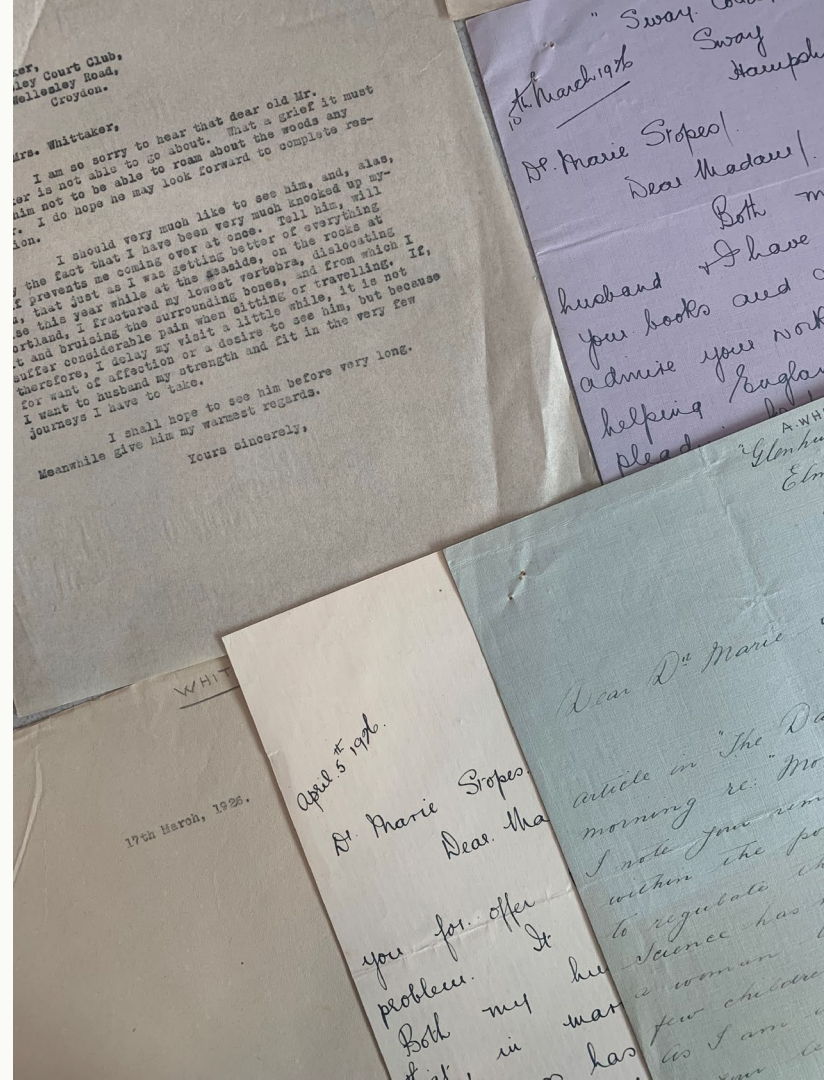 ker,
ley Court Club,
Wellesley Road,
Croydon.
Mrs. Whittaker,
I am so sorry to hear that dear old Mr.
er is not able to go about. What a grief it must
him not to be able to roam about the woods any
. I do hope he may look forward to complete res-
ion.
I should very much like to see him, and, alas,
the fact that I have been very much knocked up my-
f prevents me coming over at once. Tell him, will
, that just as I was getting better of everything
se this year while at the seaside, on the rocks at
ortland, I fractured my lowest vertebra, dislocating
t and bruising the surrounding bones, and from which I
suffer considerable pain when sitting or travelling. If,
therefore, I delay my visit a little while, it is not
for want of affection or a desire to see him, but because
I want to husband my strength and fit in the very few
journeys I have to take.
I shall hope to see him before very long.
Meanwhile give him my warmest regards.
Yours sincerely,
" Sway.
Sway
Hampsh
10th March 1926
Dr. Marie Stopes/.
Dear Madam/.
Both m
husband & I have
your books and
admire your work
helping Englan
plead
A.WHI
"Glenhu
Elm
Dear Dr Marie
article in "The Da
morning re: "Mo
I note your rem
within the po
to regulate th
Science has
a woman
few children
as I am
your le
WHIT
17th March, 1926.
April 5th, 1926.
Dr. Marie Stopes.
Dear Ma
you for offer
problem. It
Both my hu
that in marr
has